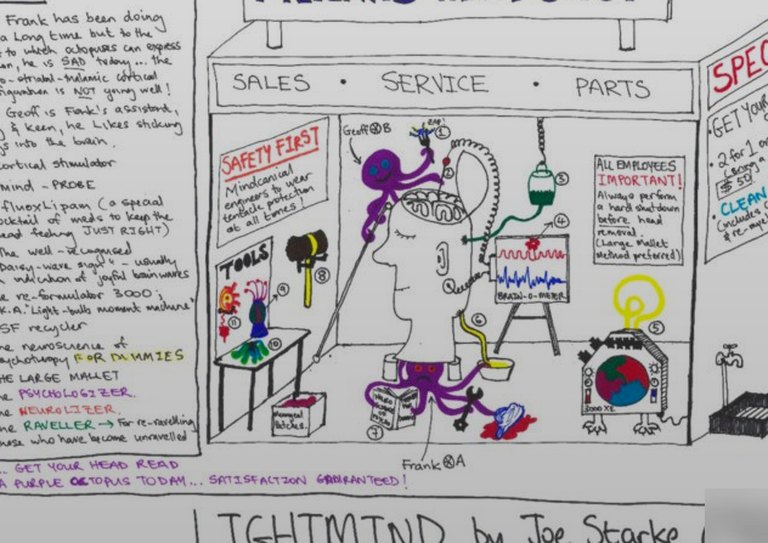 Frank has been doing
a Long time but to the
to which octopuses can express
on, he is SAD today... the
o-striatal-thalamic cortical
figuration is NOT going well!
Geoff is Frank's assistant,
& keen, he Likes sticking
s into the brain.
cortical stimulator
mind-PROBE
fluoxLipam (a special
ocktail of meds to keep the
ead feeling JUST RIGHT)
The well-recognised
Daisy-wave sign - usually
n indication of joyful brainwaves
he re-formulator 3000;
K.A. "Light-bulb moment machine"
SF recycler
he neuroscience of
psychotherapy FOR DUMMIES
HE LARGE MALLET
he PSYCHOLOGIZER.
he NEUROLIZER.
he RAVELLER → For re-ravelling
hose who have become unravelled
... GET YOUR HEAD READ
A PURPLE OCTOPUS TODAY... SATISFACTION GUARANTEED!
SALES • SERVICE • PARTS
SAFETY FIRST
Mindcanical
engineers to wear
tentacle protection
at all times!
Geoff B
ZAP!
1
2
3
4
5
6
7
8
9
10
11
TOOLS
BRAIN-O-METER
ALL EMPLOYEES
IMPORTANT!
Always perform
a hard shutdown
before head
removal.
(Large Mallet
Method preferred)
3000 XE
Frank A
SPEC
• GET YOUR
• 2 for 1 on
$50
• CLEAN
(includes
IGHTMIND by Joe Starke